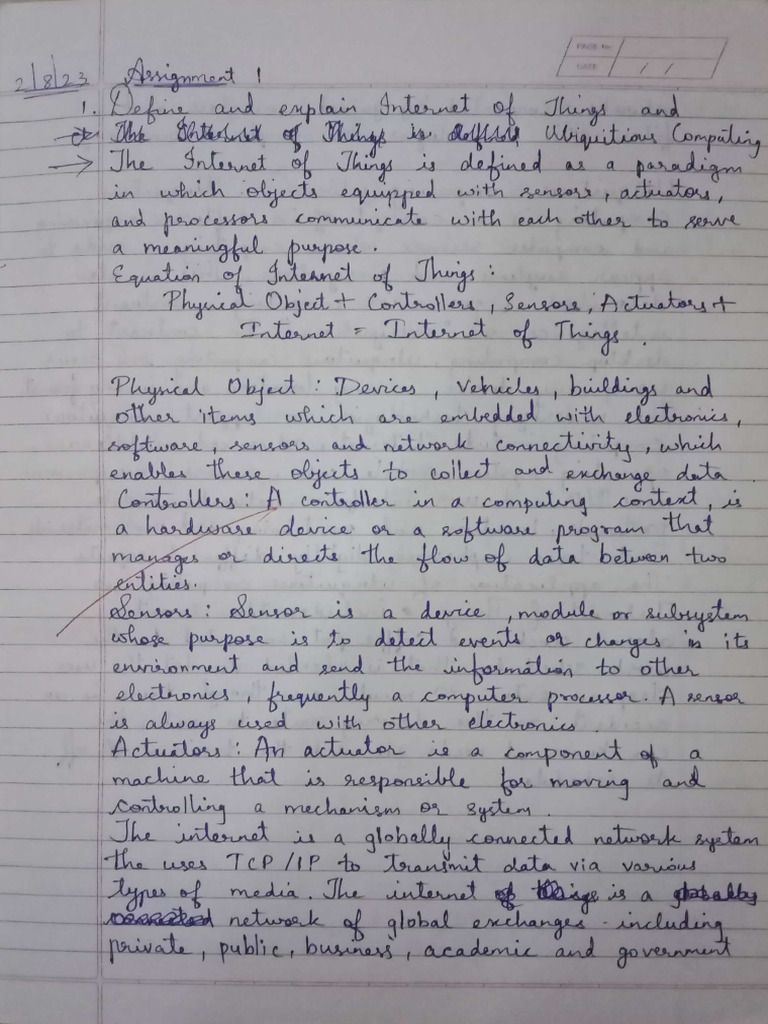 PAGE No.
DATE / /
2/8/23 Assignment 1
1. Define and explain Internet of Things and
The Internet of Things is defined Ubiquitious Computing
→ The Internet of Things is defined as a paradigm
in which objects equipped with sensors, actuators,
and processors communicate with each other to serve
a meaningful purpose.
Equation of Internet of Things :
Physical Object + Controllers, Sensors, Actuators +
Internet = Internet of Things.
Physical Object : Devices, vehicles, buildings and
other items which are embedded with electronics,
software, sensors and network connectivity, which
enables these objects to collect and exchange data
Controllers : A controller in a computing context, is
a hardware device or a software program that
manages or directs the flow of data between two
entities.
Sensors : Sensor is a device, module or subsystem
whose purpose is to detect events or changes in its
environment and send the information to other
electronics, frequently a computer processor. A sensor
is always used with other electronics.
Actuators : An actuator is a component of a
machine that is responsible for moving and
controlling a mechanism or system.
The internet is a globally connected network system
the uses TCP/IP to transmit data via various
types of media. The internet of things is a globally
connected network of global exchanges - including
private, public, business, academic and government